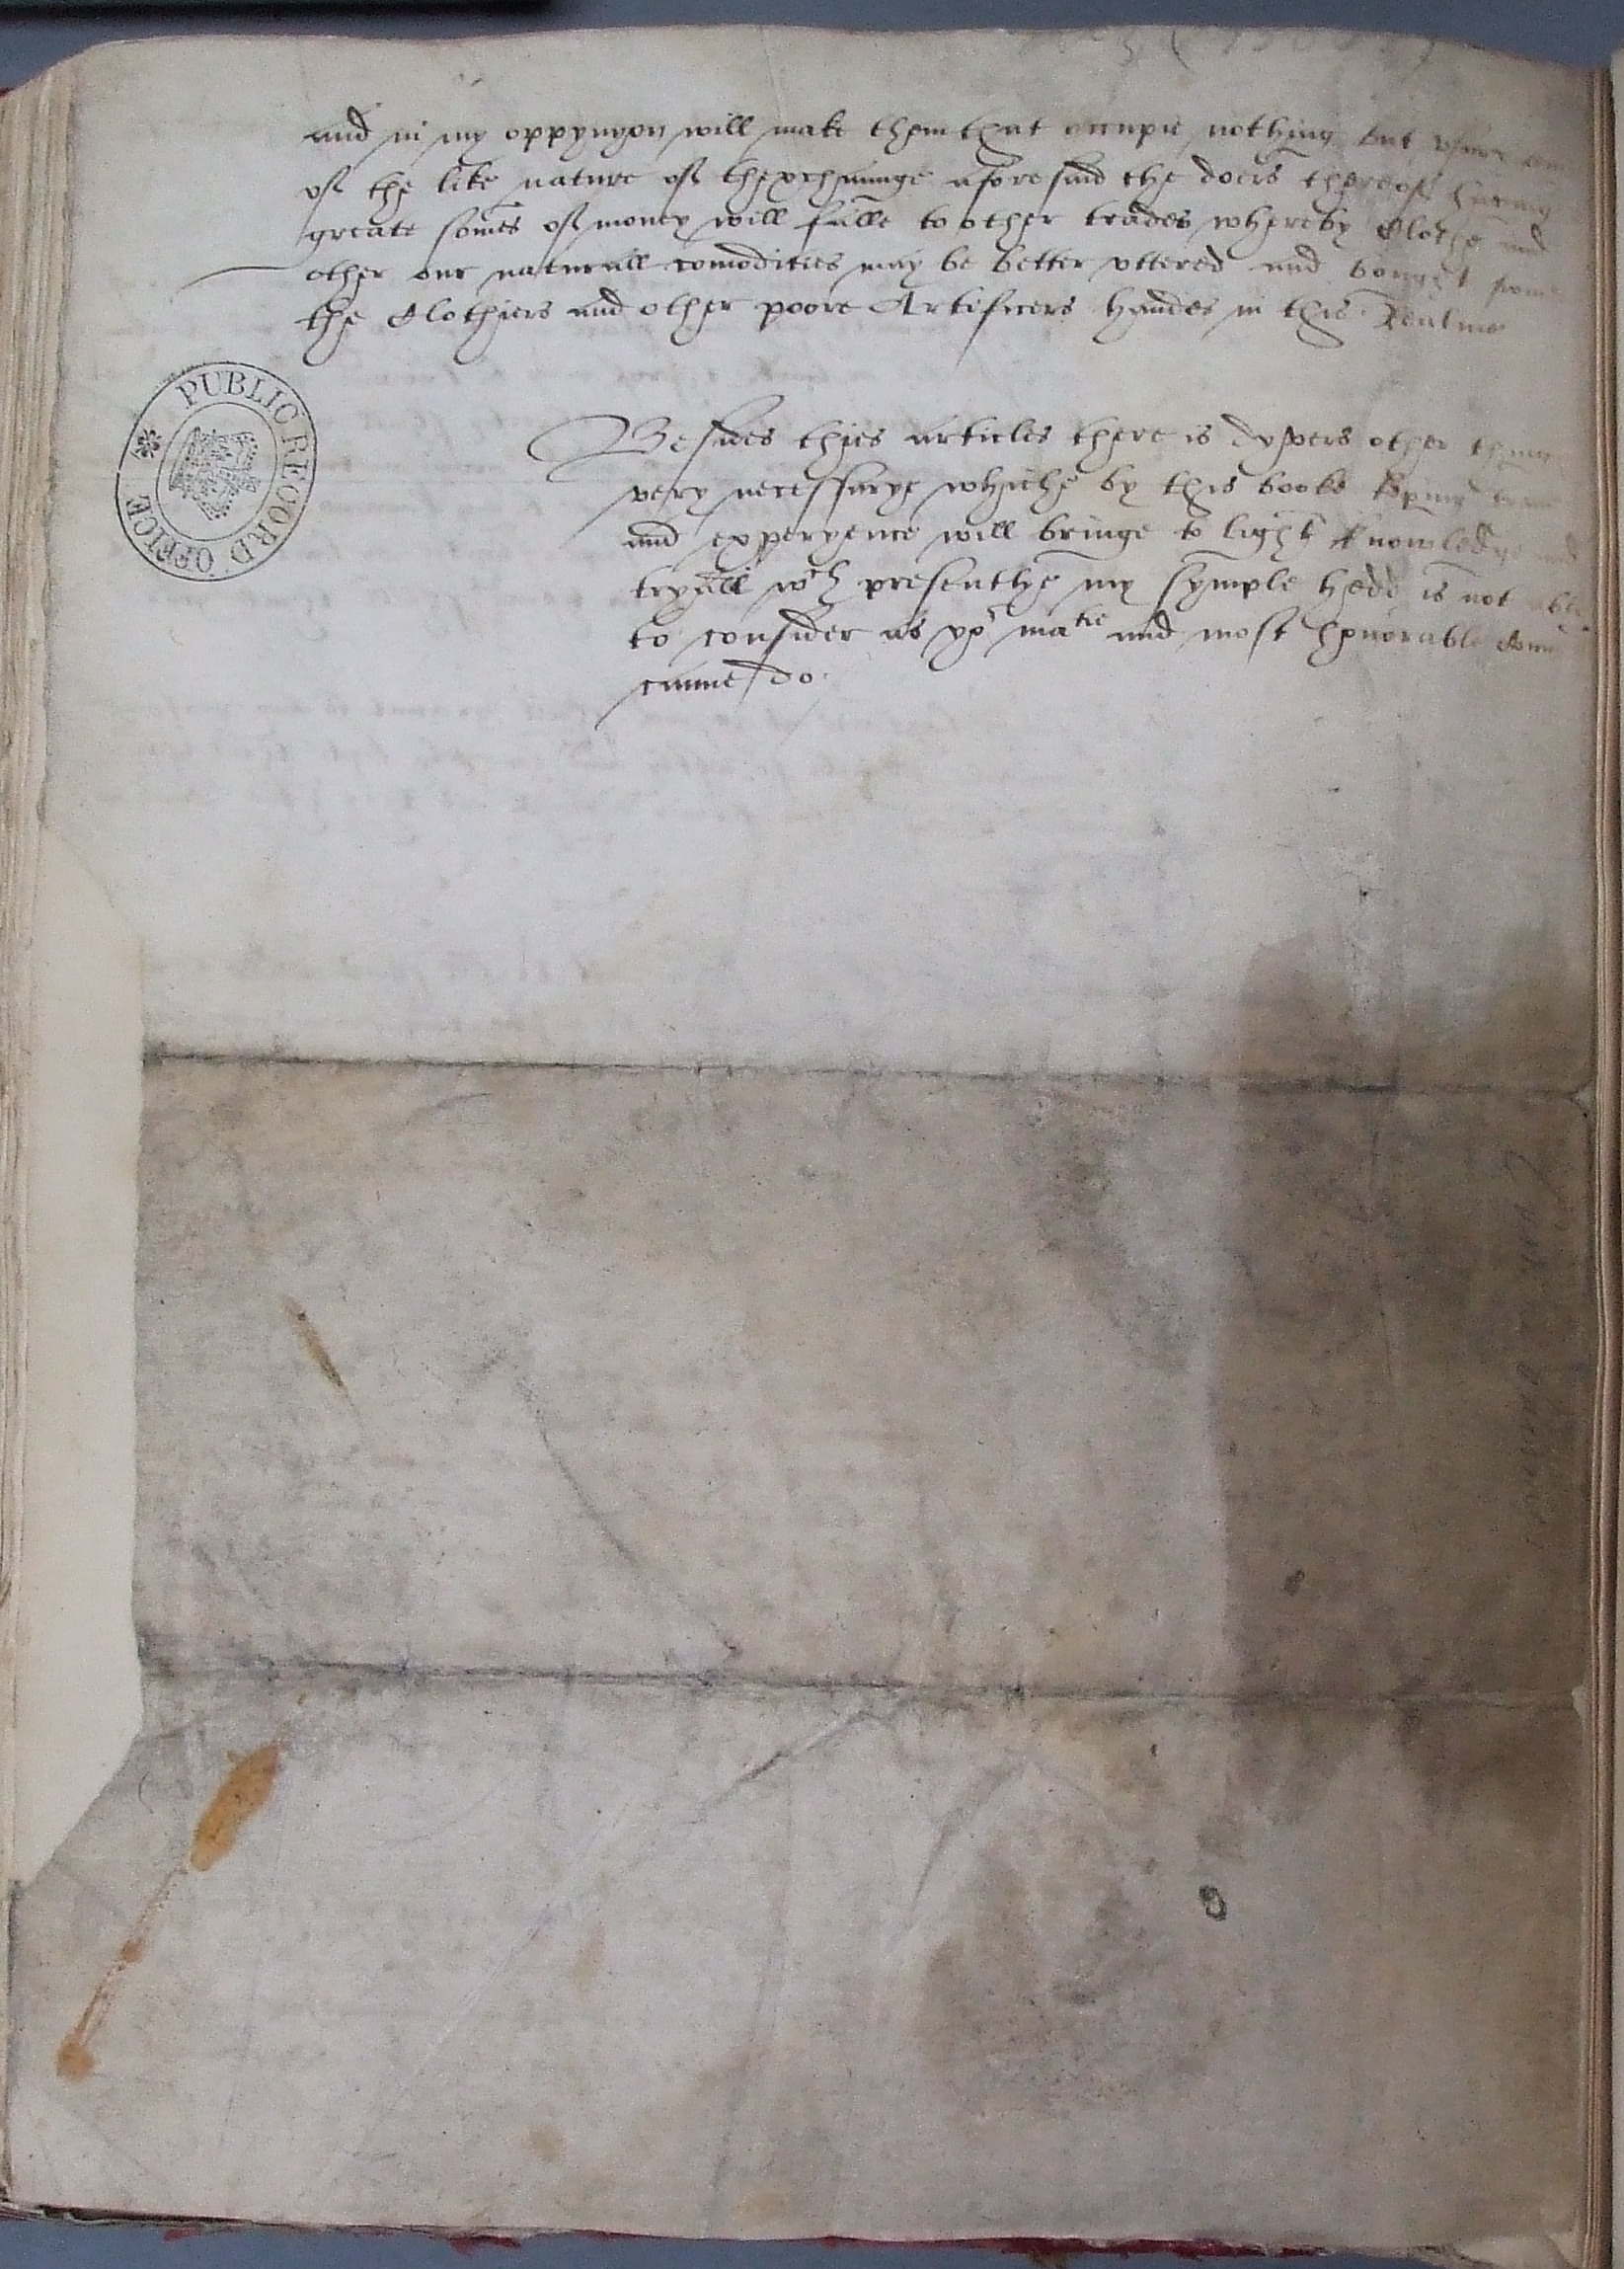 and in my oppynyon will make them that occupie nothing but
of the like nature of thexchaunge aforesaid the doers thereof having
greate somes of money will falle to other trades whereby Clothe and
other our naturall comodities may be better vttered and bought from
the Clothiers and other poore Artificers handes in this Realme
PUBLIC RECORD OFFICE
Besides thies articles there is dyvers other
very necessarye whiche by this booke
and experyence will bringe to light knowledge and
tryall wch presentlye my symple hedd is not able
to consider as yor matie and most honorable
canne do.